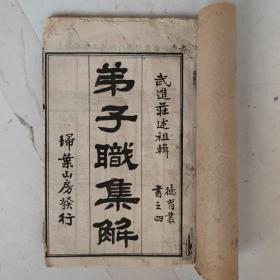 武進莊述祖輯
德育叢
書之四
弟子職集解
掃葉山房發行